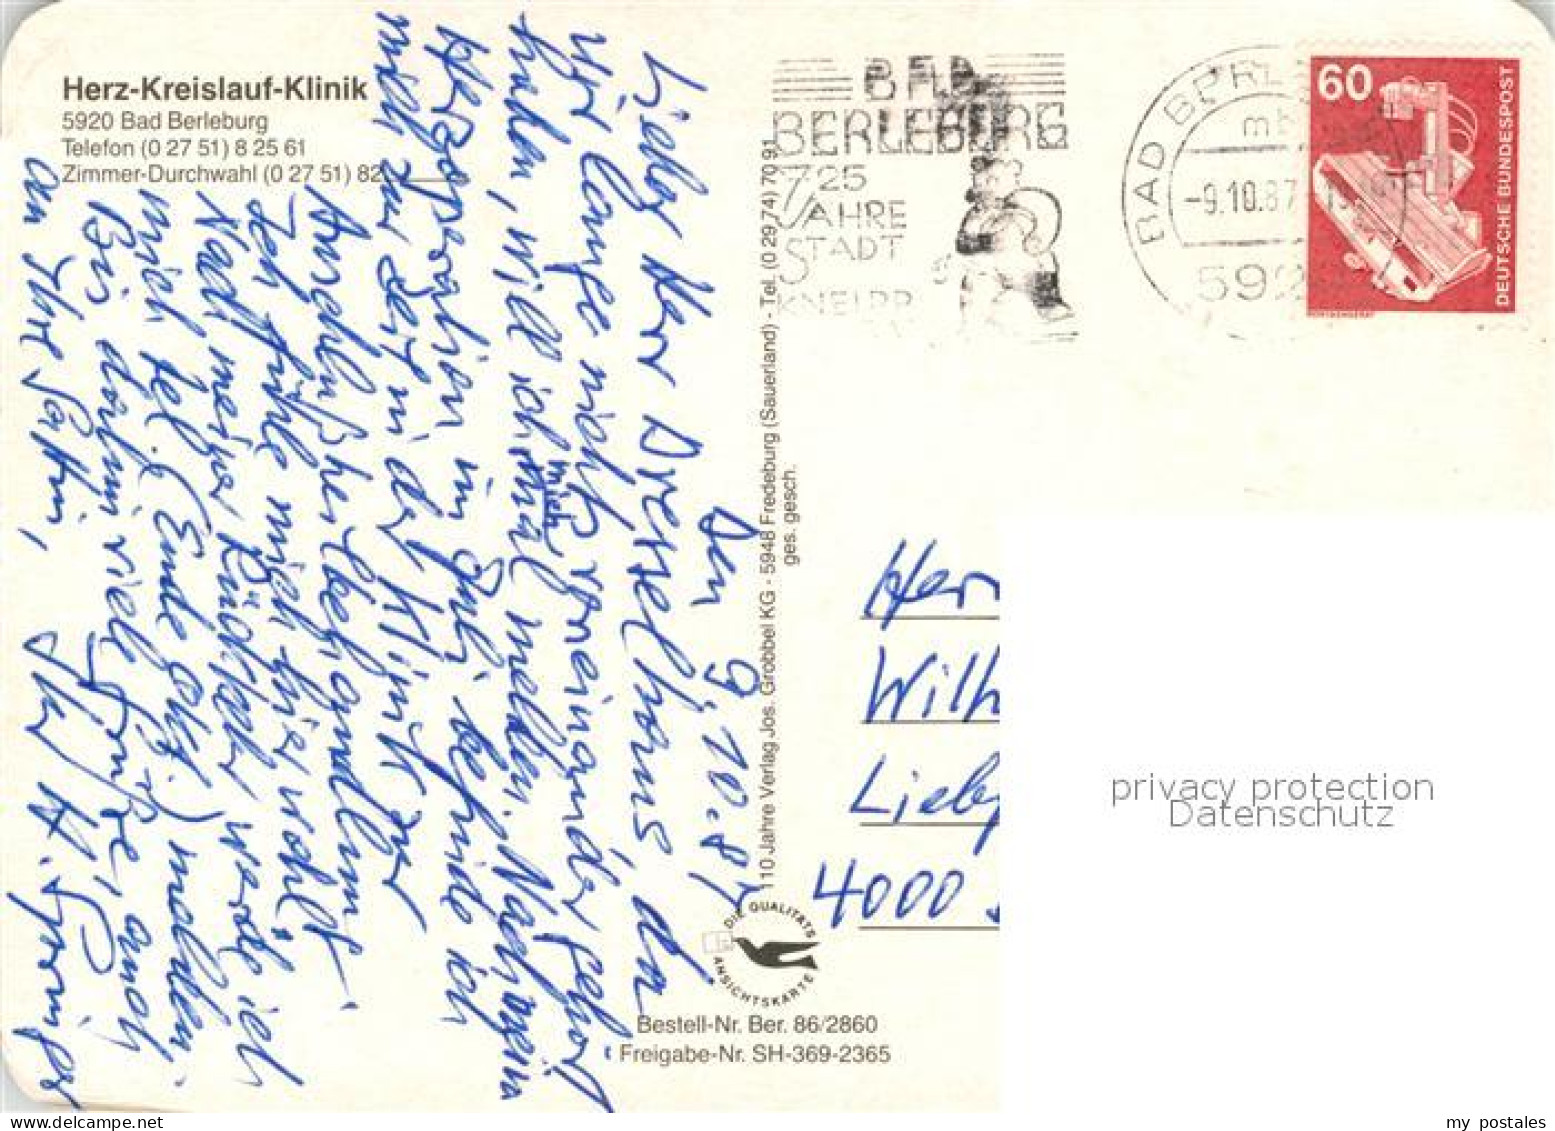 Herz-Kreislauf-Klinik
5920 Bad Berleburg
Telefon (0 27 51) 8 25 61
Zimmer-Durchwahl (0 27 51) 82
Den 9.10.87
Lieber Herr Dresselhaus, da
wir lange nichts voneinander gehört
haben, will ich mich mal melden. Nach
Herzoperation im Juli befinde ich
mich zur Zeit in der Klinik zur
Anschlußheilbehandlung.
Ich fühle mich hier wohl.
Nach meiner Rückkehr werde ich
mich tel. (Ende Okt.) melden.
Bis dahin viele Grüße, auch
an Ihre Gattin,
Ihr H.
110 Jahre Verlag Jos. Grobbel KG - 5948 Fredeburg (Sauerland) - Tel. (0 29 74) 70 91
ges. gesch.
DIE QUALITÄTS
ANSICHTSKARTE
Bestell-Nr. Ber. 86/2860
Freigabe-Nr. SH-369-2365
BAD
BERLEBURG
725
JAHRE
STADT
KNEIPP
BAD BERLE
mb
-9.10.87
592
60
DEUTSCHE BUNDESPOST
Herr
Wilh
Lieb
4000
privacy protection
Datenschutz
my postales